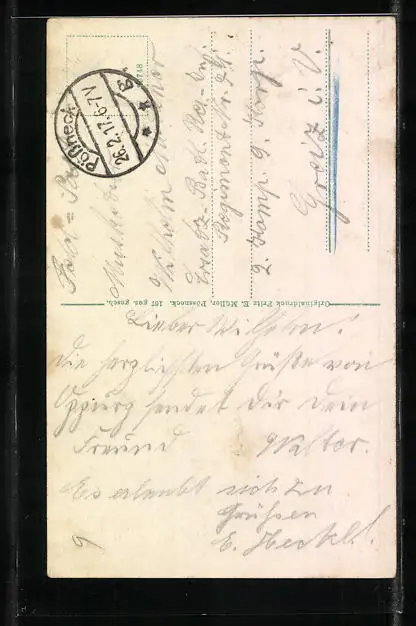 Pößneck
26.2.17.6-7V
Feld-Post
Musketier
Wilhelm
Ersatz-Batl. Res.-Inf.
Regiment Nr.
2. Komp. 9. Korp.
Greiz i. V.
Originaldruck Fritz E. Müller, Pössneck. 167 ges. gesch.
Lieber Wilhelm!
Die herzlichsten Grüße von
Oppurg sendet Dir Dein
Freund Walter.
Es erlaubt sich zu
Grüßen